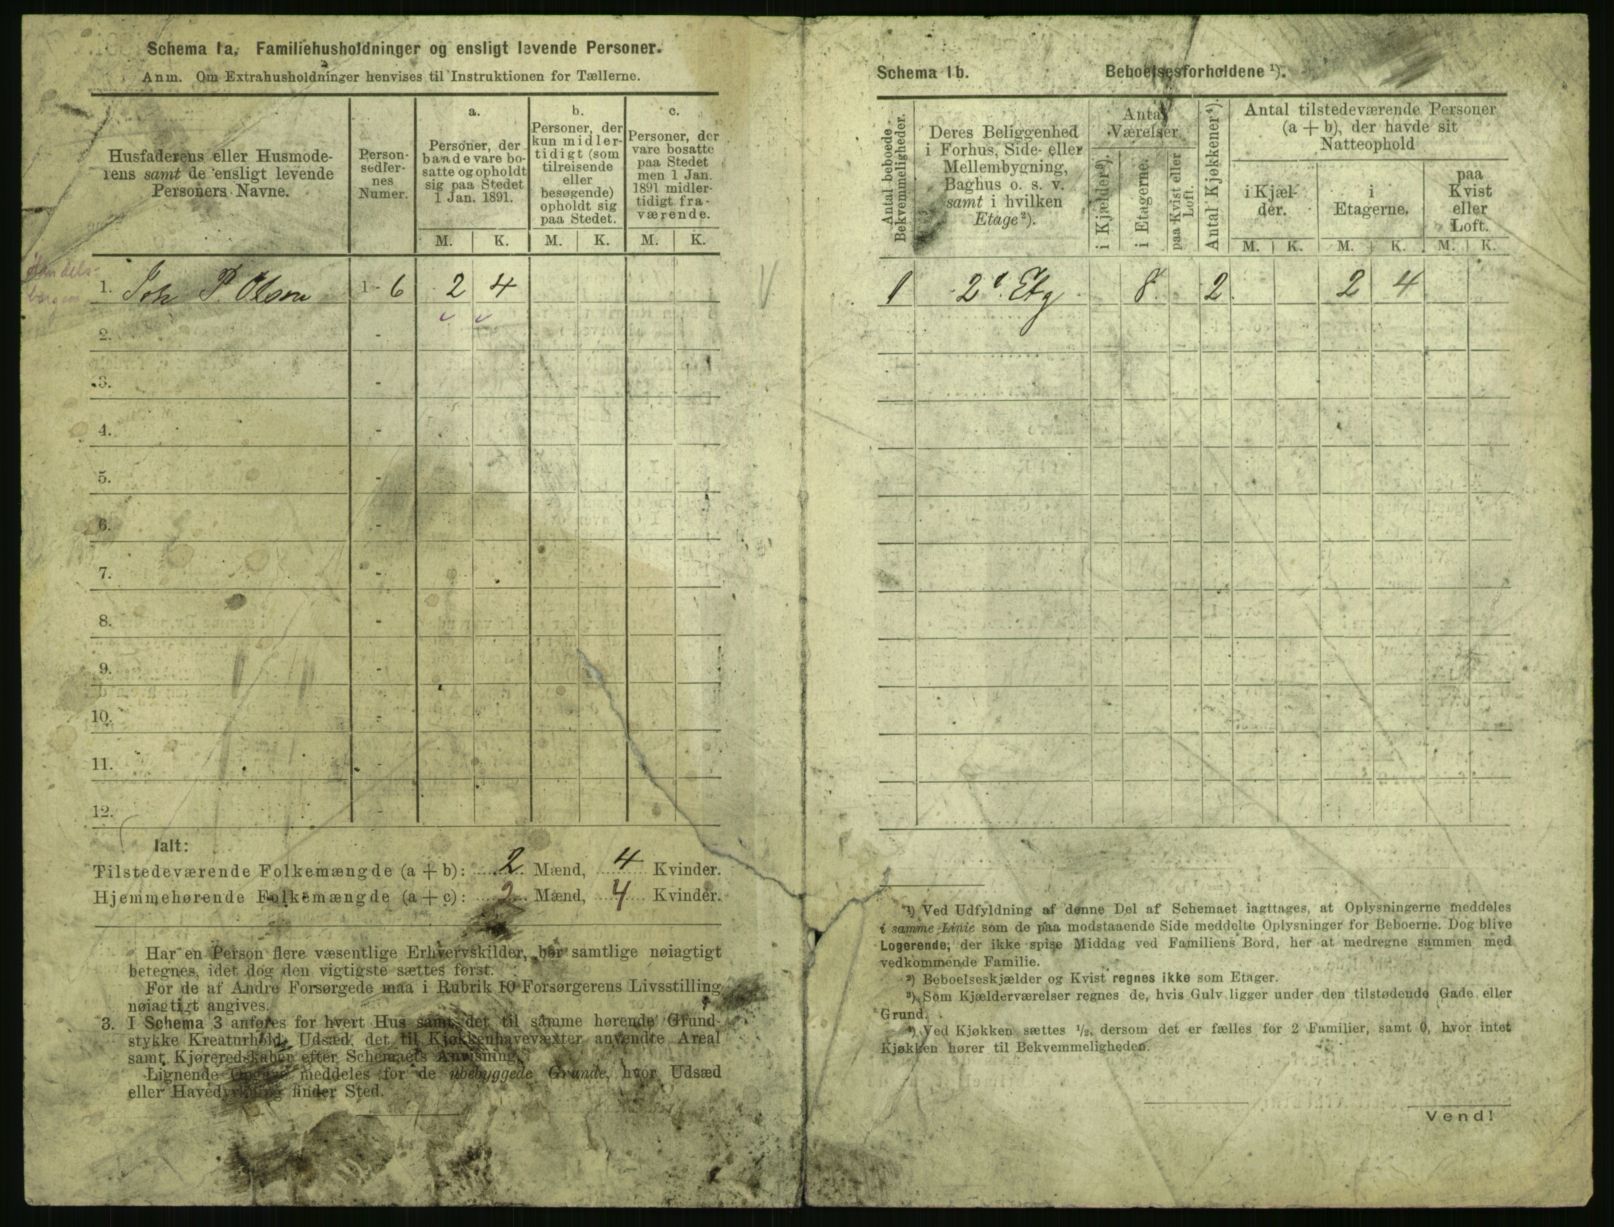 Schema 1a. Familiehusholdninger og ensligt levende Personer.
Anm. Om Extrahusholdninger henvises til Instruktionen for Tællerne.
Husfaderens eller Husmode-
rens samt de ensligt levende
Personers Navne.
Person-
sedler-
nes
Numer.
a.
Personer, der
baade vare bo-
satte og opholdt
sig paa Stedet
1 Jan. 1891.
b.
Personer, der
kun midler-
tidigt (som
tilreisende
eller
besøgende)
opholdt sig
paa Stedet.
c.
Personer, der
vare bosatte
paa Stedet
men 1 Jan.
1891 midler-
tidigt fra-
værende.
M. K. M. K. M. K.
Handels-
borgen
1. Joh P. Olsen 1 - 6 2 4
2.
3. -
4. -
5. -
6. -
7. -
8. -
9. -
10. -
11. -
12. -
Ialt:
Tilstedeværende Folkemængde (a + b): 2 Mænd, 4 Kvinder.
Hjemmehørende Folkemængde (a + c): 2 Mænd, 4 Kvinder.
Har en Person flere væsentlige Erhvervskilder, bør samtlige nøiagtigt
betegnes, idet dog den vigtigste sættes først.
For de af Andre Forsørgede maa i Rubrik 10 Forsørgerens Livsstilling
nøiagtigt angives.
3. I Schema 3 anføres for hvert Hus samt det til samme hørende Grund-
stykke Kreaturhold, Udsæd, det til Kjøkkenhavevæxter anvendte Areal
samt Kjøreredskaber efter Schemaets Anvisning.
Lignende meddeles for de ubebyggede Grunde, hvor Udsæd
eller Havedyrkning finder Sted.
Schema 1b. Beboelsesforholdene ¹).
Antal beboede
Bekvemmeligheder.
Deres Beliggenhed
i Forhus, Side- eller
Mellembygning,
Baghus o. s. v.
samt i hvilken
Etage ²).
Antal
Værelser
i Kjælder ³).
i Etagerne.
paa Kvist eller
Loft.
Antal Kjøkkener ⁴).
Antal tilstedeværende Personer
(a + b), der havde sit
Natteophold
i Kjæl-
der.
i
Etagerne.
paa
Kvist
eller
Loft.
M. K. M. K. M. K.
1 2d. Etg 8 2 2 4
¹) Ved Udfyldning af denne Del af Schemaet iagttages, at Oplysningerne meddeles
i samme Linie som de paa modstaaende Side meddelte Oplysninger for Beboerne. Dog blive
Logerende, der ikke spise Middag ved Familiens Bord, her at medregne sammen med
vedkommende Familie.
²) Beboelseskjælder og Kvist regnes ikke som Etager.
³) Som Kjælderværelser regnes de, hvis Gulv ligger under den tilstødende Gade eller
Grund.
⁴) Ved Kjøkken sættes ½, dersom det er fælles for 2 Familier, samt 0, hvor intet
Kjøkken hører til Bekvemmeligheden.
Vend!